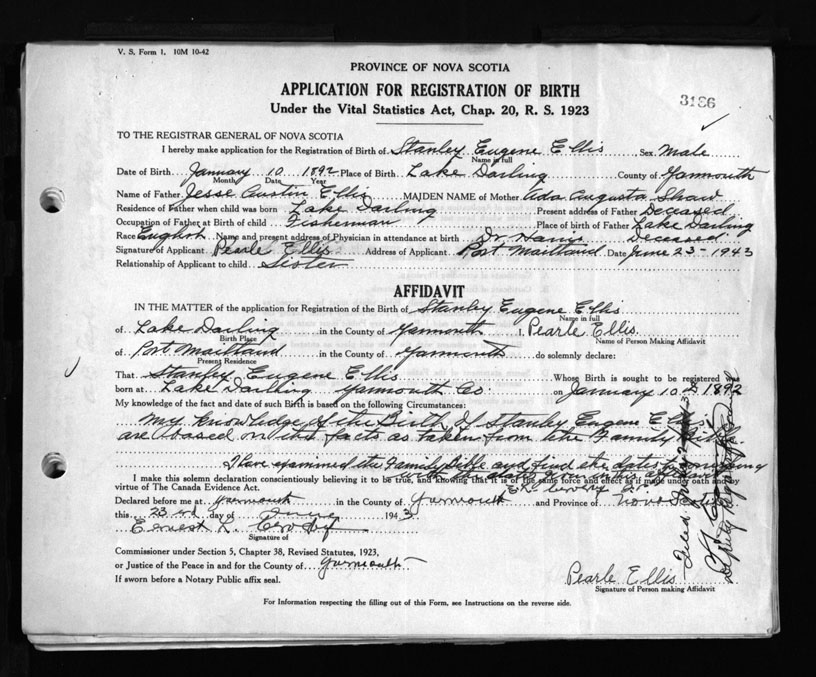 V. S. Form 1. 10M 10-42
PROVINCE OF NOVA SCOTIA
APPLICATION FOR REGISTRATION OF BIRTH
Under the Vital Statistics Act, Chap. 20, R. S. 1923
3186
TO THE REGISTRAR GENERAL OF NOVA SCOTIA
I hereby make application for the Registration of Birth of Stanley Eugene Ellis Sex Male
Name in full
Date of Birth January 10 1892 Place of Birth Lake Darling County of Yarmouth
Month Date Year
Name of Father Jesse Austin Ellis MAIDEN NAME of Mother Ada Augusta Shaw
Residence of Father when child was born Lake Darling Present address of Father Deceased
Occupation of Father at Birth of child Fisherman Place of birth of Father Lake Darling
Race English Name and present address of Physician in attendance at birth Dr. Harris Deceased
Signature of Applicant Pearle Ellis Address of Applicant Port Maitland Date June 23 - 1943
Relationship of Applicant to child Sister
AFFIDAVIT
IN THE MATTER of the application for Registration of the Birth of Stanley Eugene Ellis
Name in full
of Lake Darling in the County of Yarmouth I, Pearle Ellis
Birth Place Name of Person Making Affidavit
of Port Maitland in the County of Yarmouth do solemnly declare:
Present Residence
That Stanley Eugene Ellis Whose Birth is sought to be registered was
born at Lake Darling Yarmouth Co on January 10 1892
My knowledge of the fact and date of such Birth is based on the following Circumstances:
My knowledge of the Birth of Stanley Eugene Ellis
are based on the facts as taken from the Family Bible.
I have examined the Family Bible and find the dates
I make this solemn declaration conscientiously believing it to be true, and knowing that it is of the same force and effect as if made under oath and by
virtue of The Canada Evidence Act.
Declared before me at Yarmouth in the County of Yarmouth and Province of Nova Scotia
this 23rd day of June 1943
Ernest L. Crosby
Signature of
Commissioner under Section 5, Chapter 38, Revised Statutes, 1923,
or Justice of the Peace in and for the County of Yarmouth
If sworn before a Notary Public affix seal.
Pearle Ellis
Signature of Person making Affidavit
For Information respecting the filling out of this Form, see Instructions on the reverse side.
Filed
Deputy Registrar General